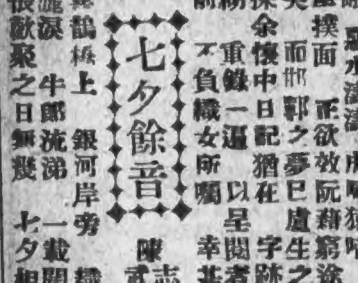 撲面 正欲效阮藉窮途
而邯鄲之夢已盧生之
探余懷中日記猶在 字跡
重錄一遍 以呈閱者
不負織女所囑 幸甚
七夕餘音
陳
志
武
鵲橋上 銀河岸旁 織
淚 牛郎流涕 一載間
歡聚之日無幾 七夕相